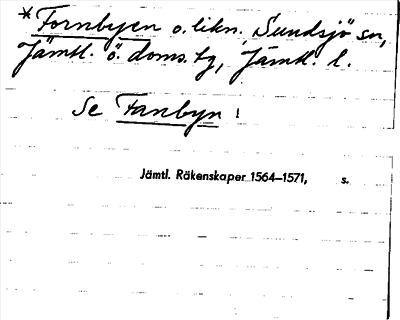 * Fornbyen o. likn. Sundsjö sn,
Jämtl. ö. doms. tg, Jämtl. l.
Se Fanbyn !
Jämtl. Räkenskaper 1564–1571, s.